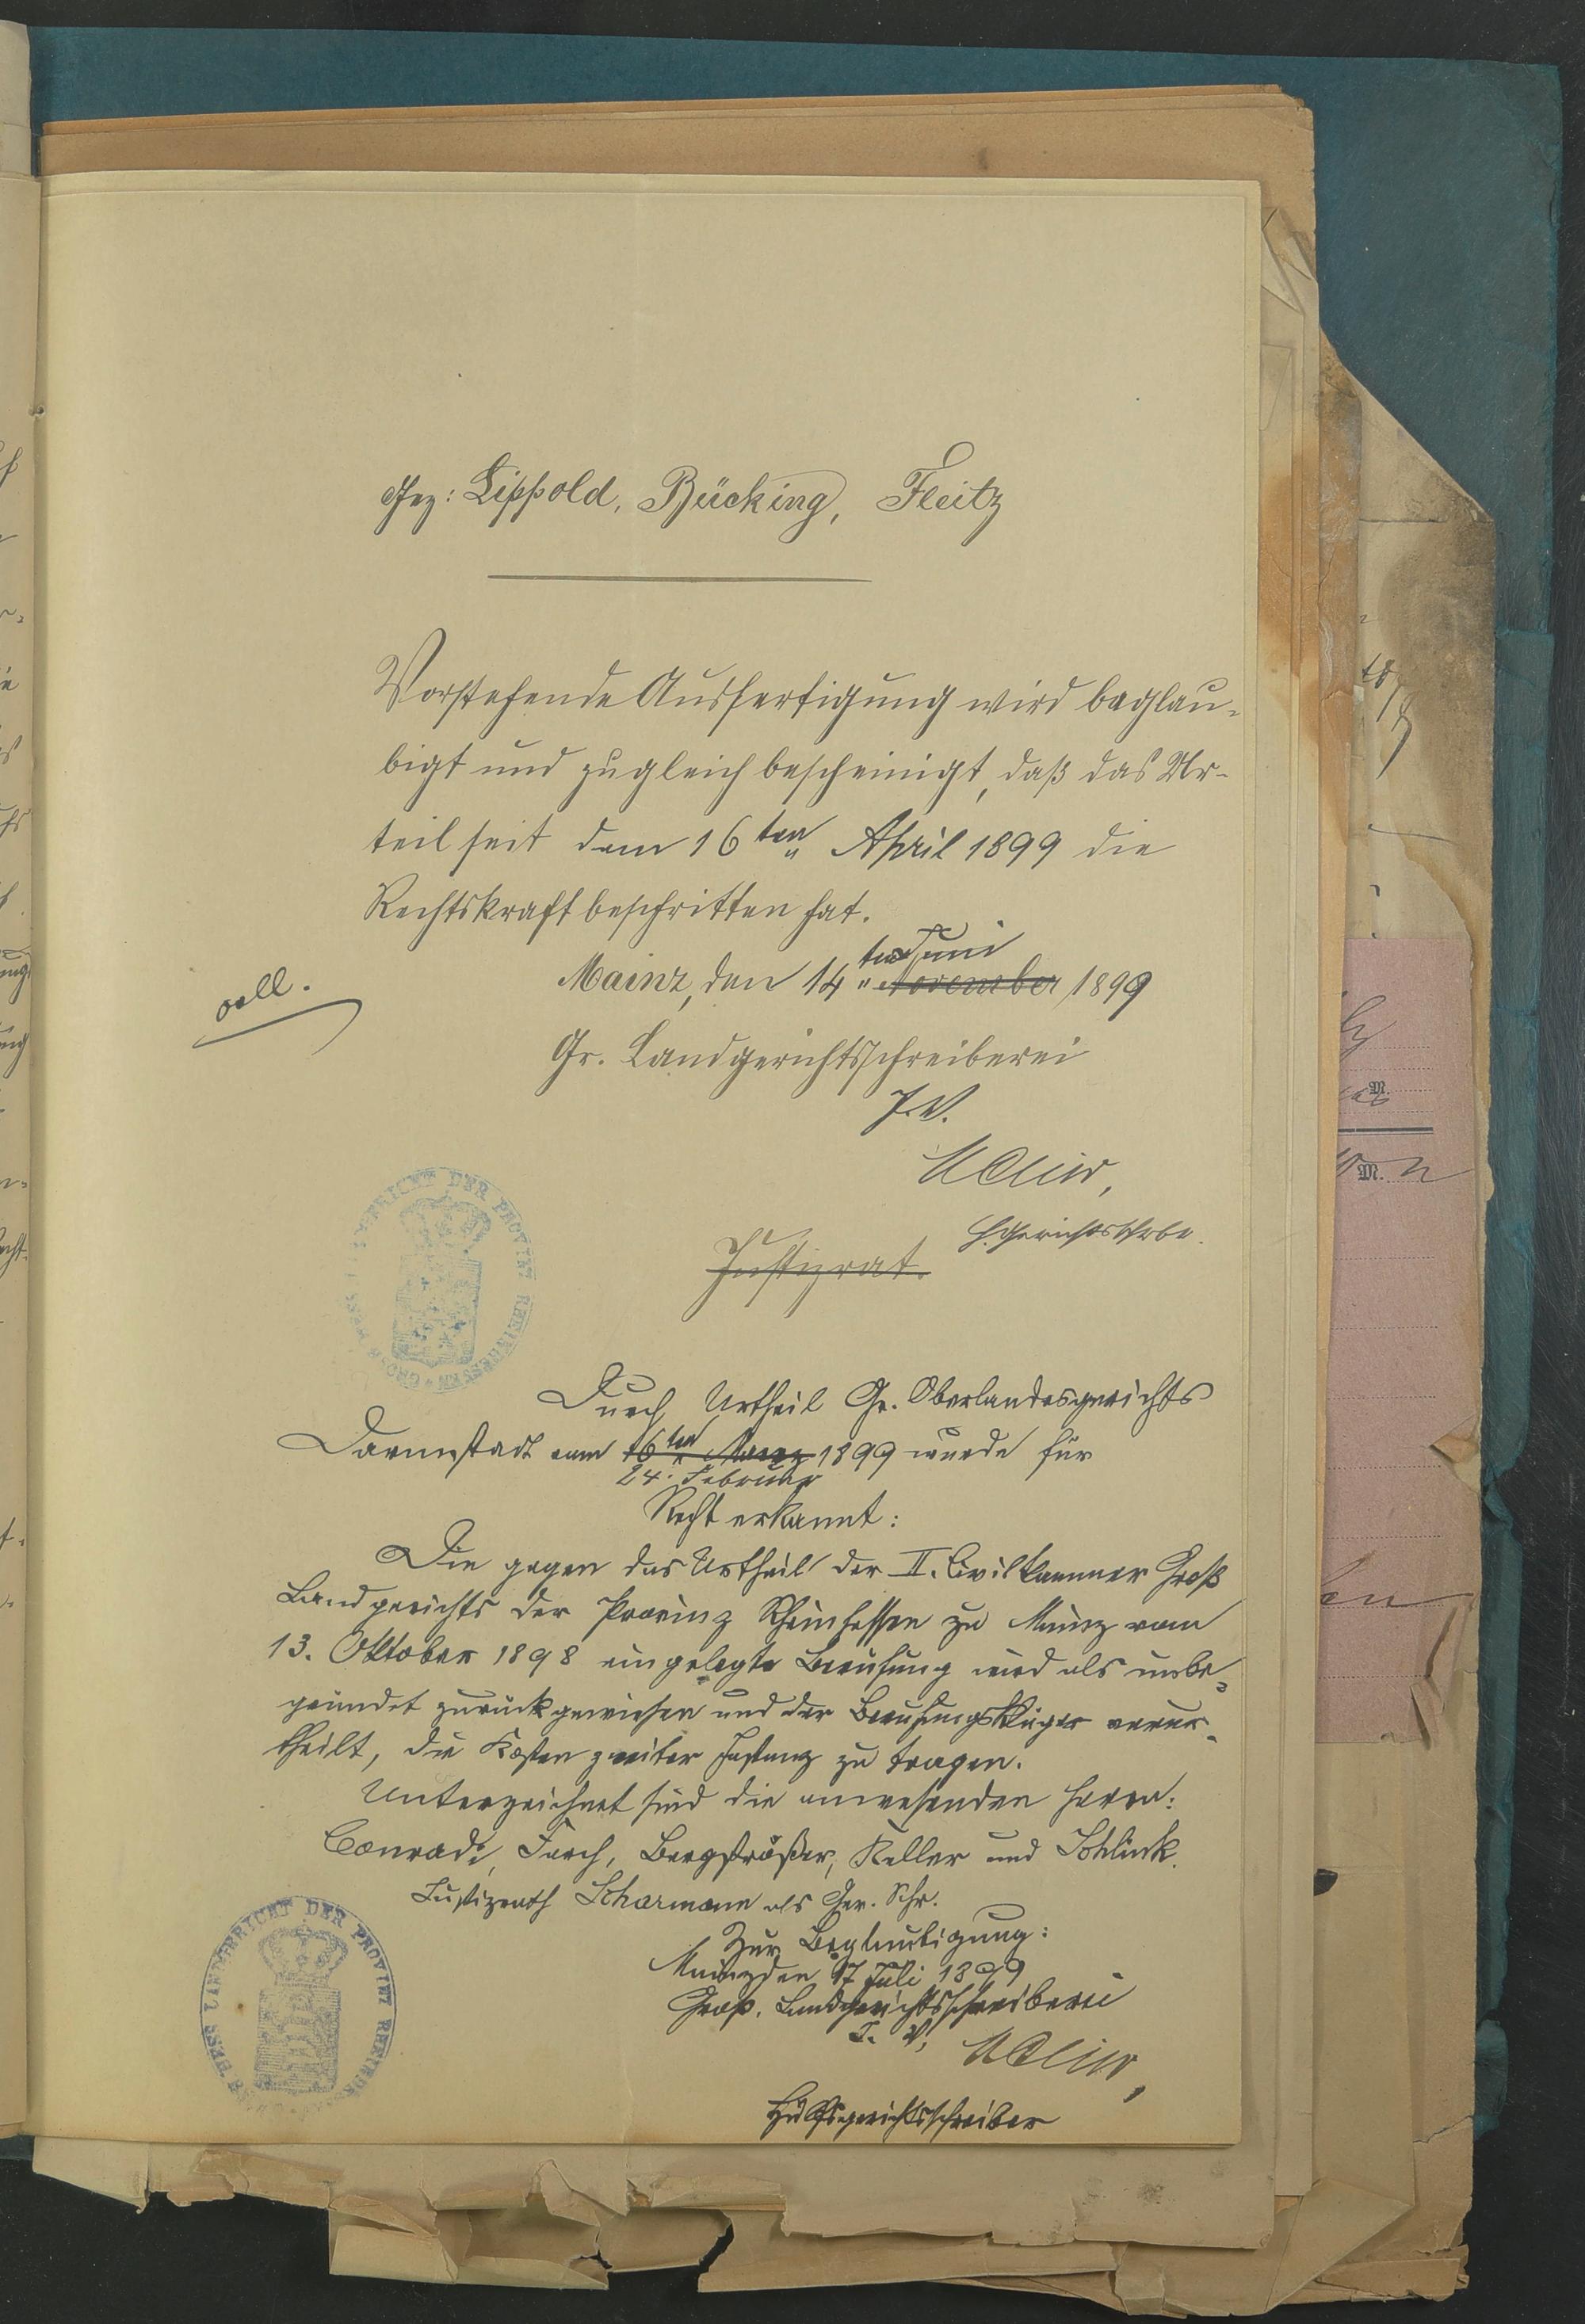 Gez: Lippold, Bücking, Fleitz
Vorstehende Ausfertigung wird beglau-
bigt und zugleich bescheinigt, daß das Ur-
teil seit dem 16ten April 1899 die
Rechtskraft beschritten hat.
Juni
Mainz, den 14ten November 1899
coll.
Gr. Landgerichtsschreiberei
I. V.
H. Gerichtsschrbr.
Justizrat.
Durch Urtheil Gr. Oberlandesgerichts
Darmstadt vom 16ten März 1899 wurde für
24. Februar
Recht erkannt:
Die gegen das Urtheil der II. Civilkammer Groß
Landgerichts der Provinz Rheinhessen zu Mainz vom
13. Oktober 1898 eingelegte Berufung wird als unbe-
gründet zurückgewiesen und der Berufungskläger verur-
theilt, die Kosten zweiter Instanz zu tragen.
Unterzeichnet sind die anwesenden Herrn:
Conradi, Forch, Bergsträßer, Keller und Schlink.
Justizrath Scharmann als Ger. Schr.
Zur Beglaubigung:
Mainz den 17 Juli 1899
Groß. Landgerichtsschreiberei
I. V.
Hülfsgerichtsschreiber
LANDGERICHT DER PROVINZ RHEINHESSEN
HESS LANDGERICHT DER PROVINZ